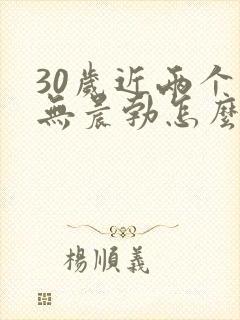 30歲近兩个
無晨勃怎麼
楊順義